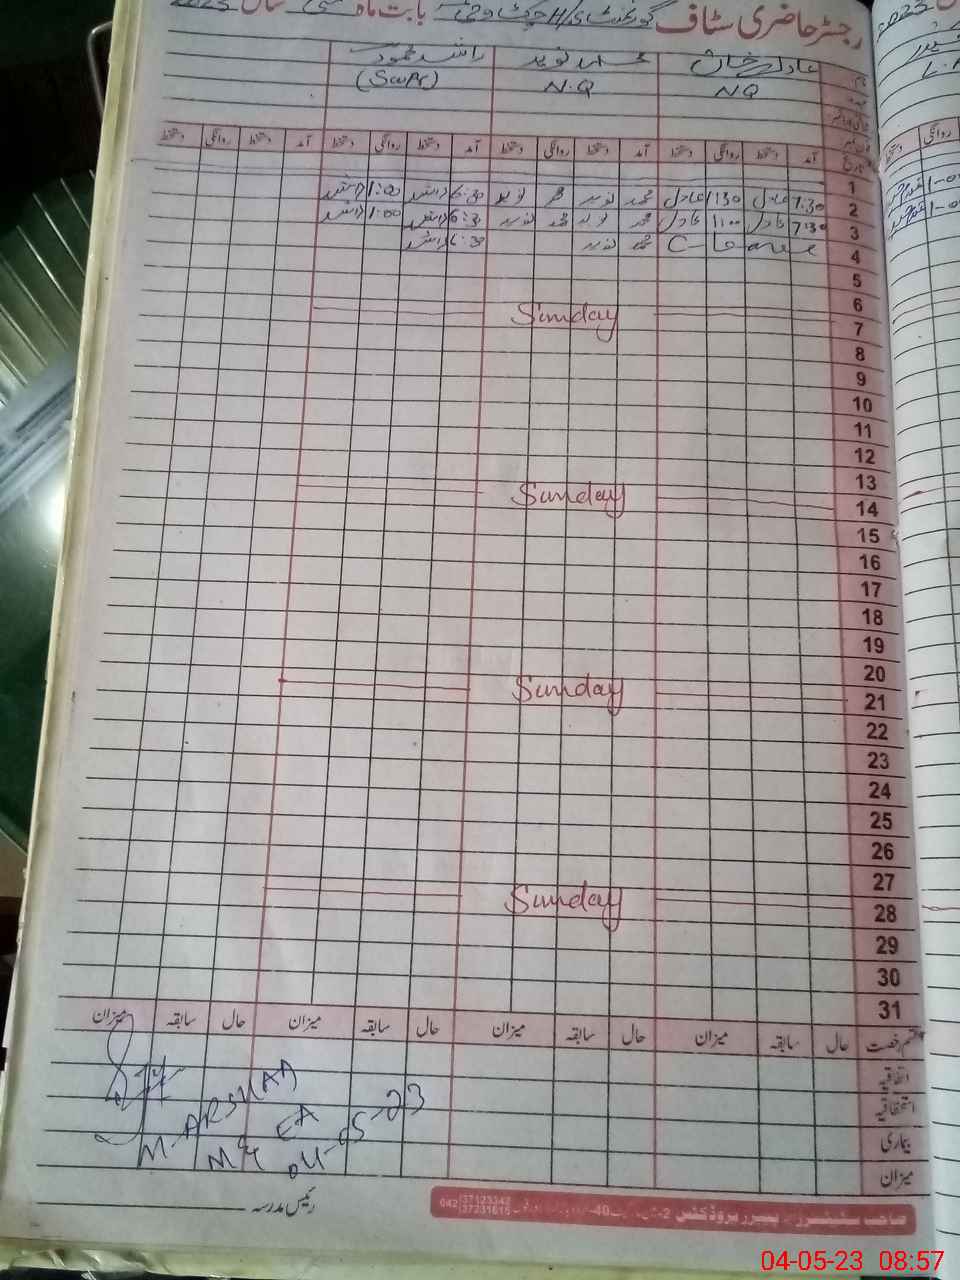 رجسٹر حاضری سٹاف گورنمنٹ بابت ماہ مئی سال 2023
عادل خان محمد نوید راشد محمود
NQ N.Q (Swpr)
تاریخ آمد دستخط روانگی دستخط آمد دستخط روانگی دستخط آمد دستخط روانگی دستخط آمد دستخط روانگی دستخط
1
2 7:30 عادل 1:30 عادل محمد نوید محمد نوید 6:30 راشد 1:00 راشد
3 7:30 عادل 11:00 عادل محمد نوید محمد نوید 6:30 راشد 1:00 راشد
4 Leave محمد نوید 6:30 راشد
5
6
7 Sunday
8
9
10
11
12
13
14 Sunday
15
16
17
18
19
20
21 Sunday
22
23
24
25
26
27
28 Sunday
29
30
31
قسم رخصت حال سابقہ میزان حال سابقہ میزان حال سابقہ میزان حال سابقہ میزان
اتفاقیہ
استحقاقیہ
بیماری
میزان
M-ARSHAD
EA
04-05-23
رئیس مدرسہ
042 37123342
37231616
04-05-23 08:57